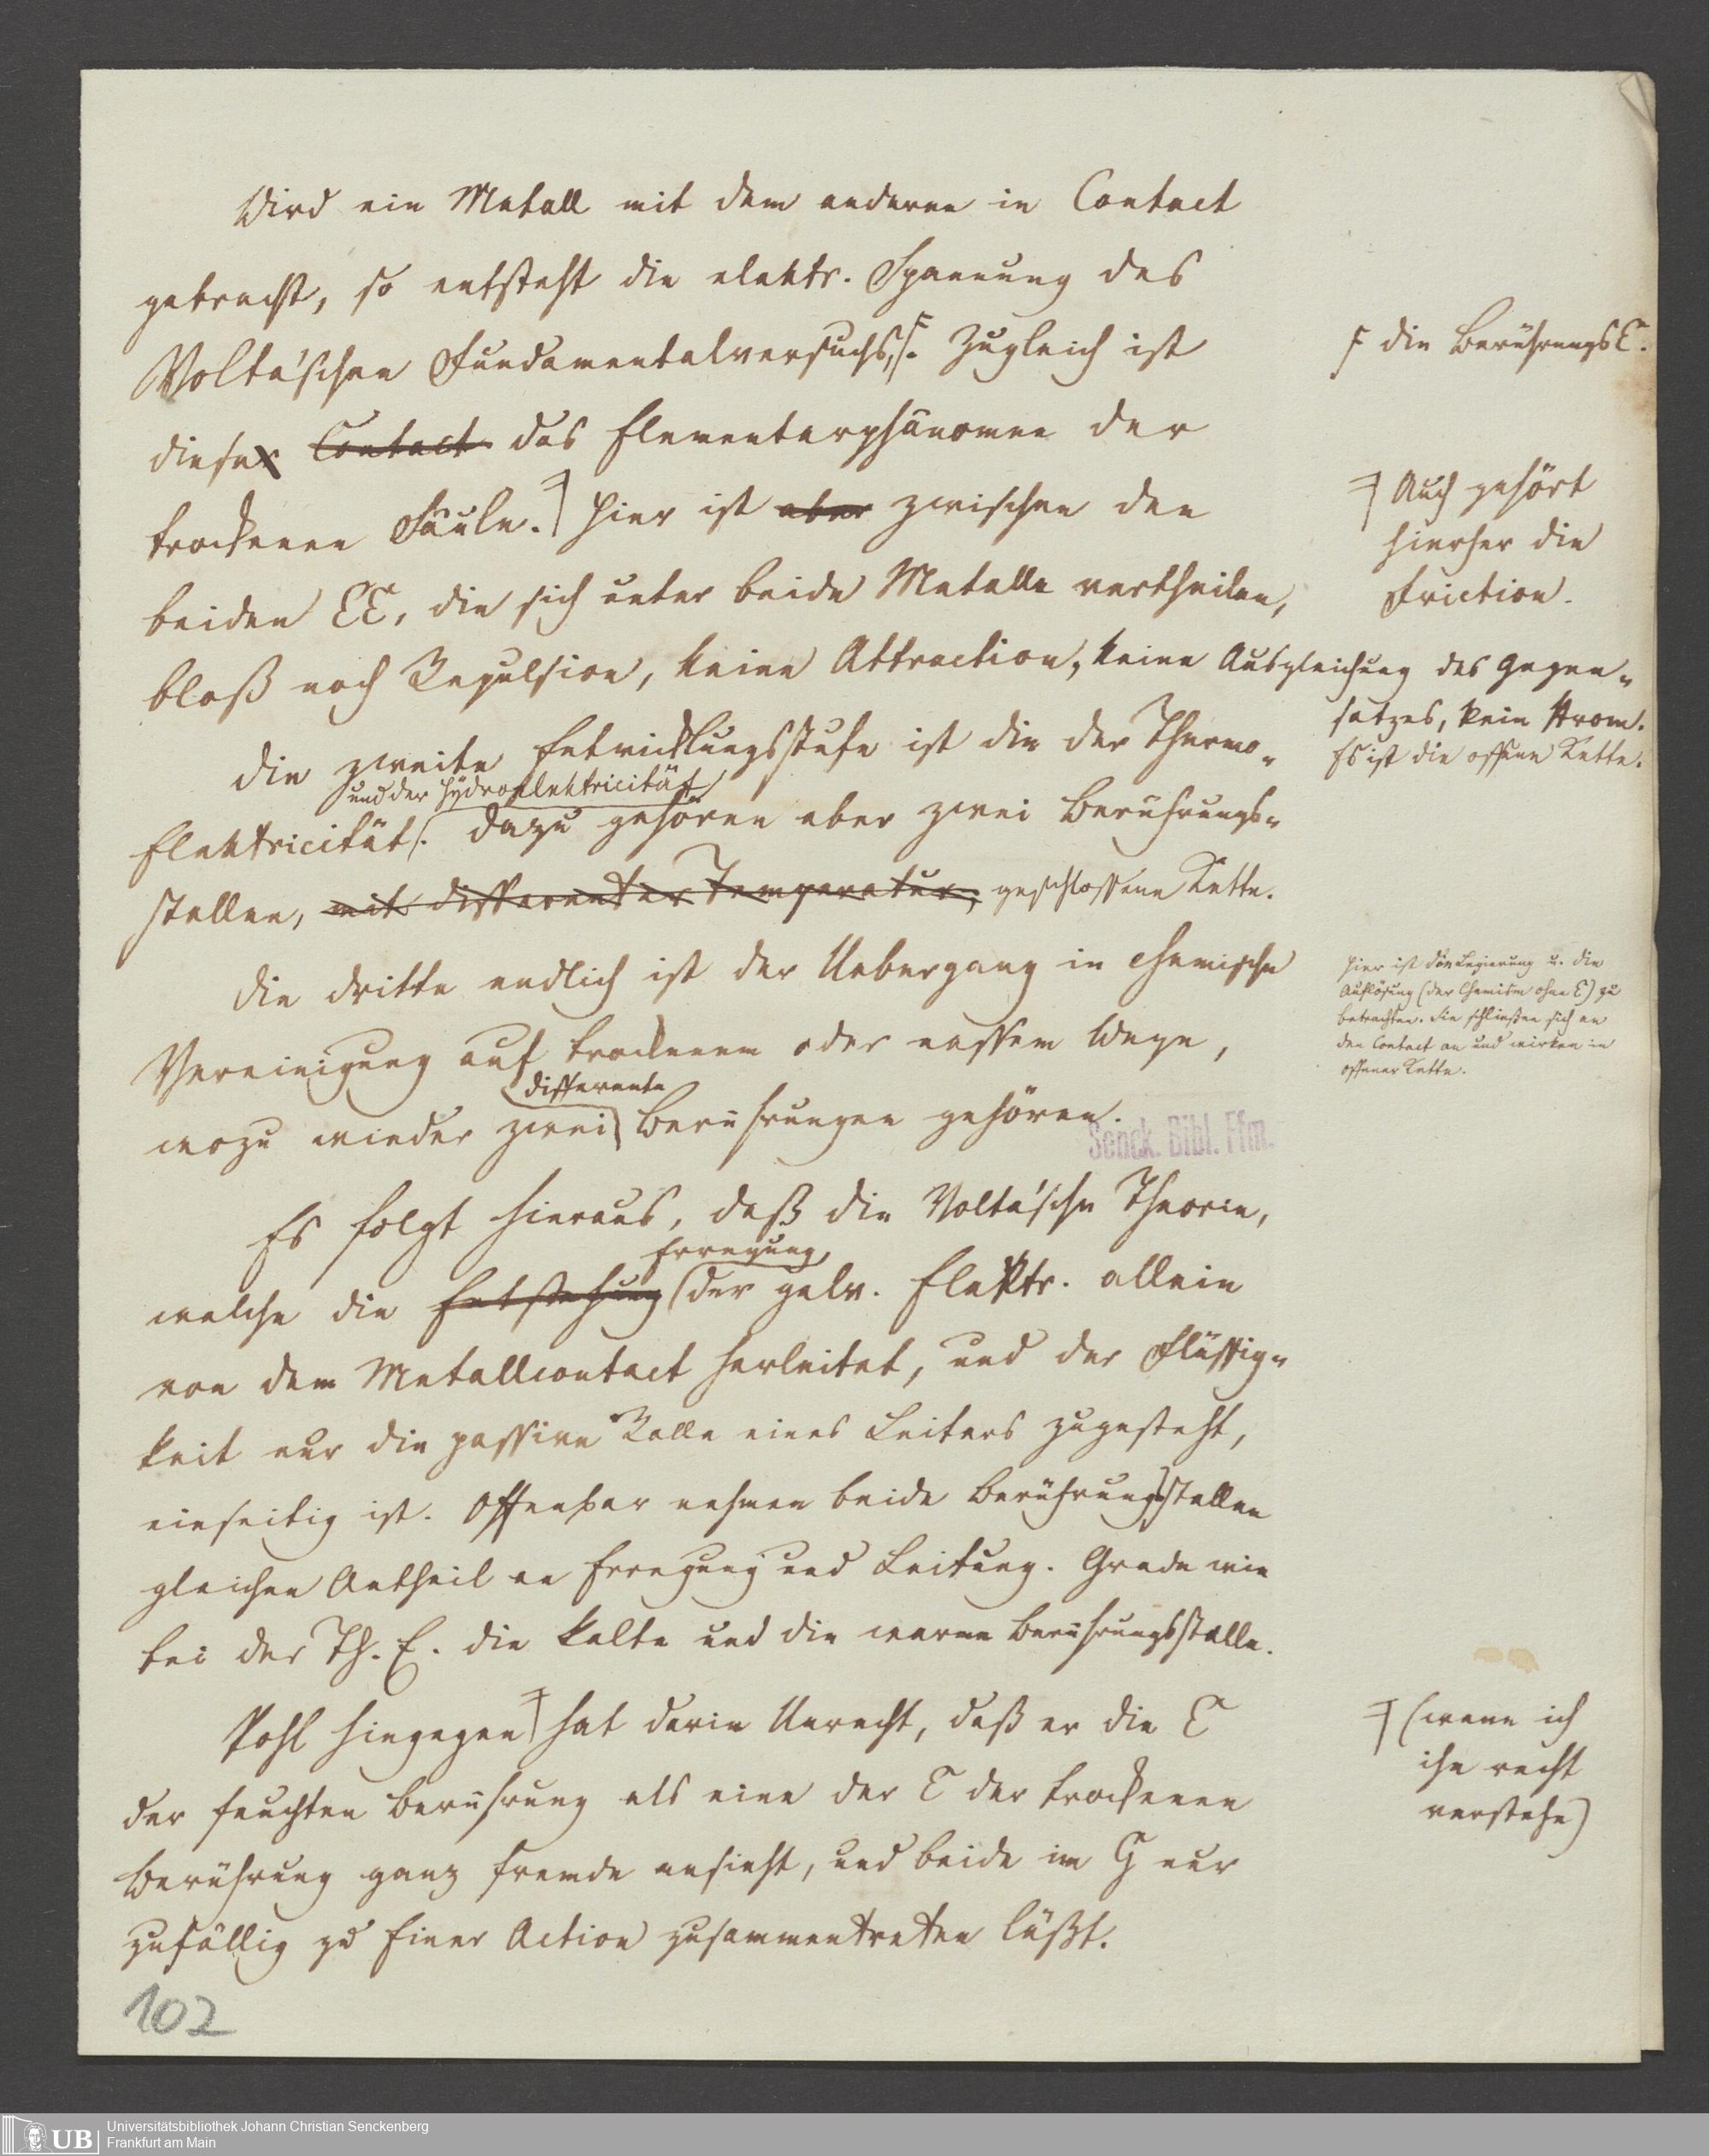 Wird ein Metall mit dem anderen in Contact
gebracht, so entsteht die elektr. Spannung des
Volta'schen Fundamentalversuchs,. Zugleich ist
die BerührungsE.
dieser Contact das Elementarphänomen der
trockenen Säule. Hier ist aber zwischen den
Auch gehört
hierher die
Friction.
beiden EE, die sich unter beide Metalle vertheilen,
bloß noch Repulsion, keine Attraction, keine Ausgleichung des Gegen-
satzes, kein Strom.
Es ist die offene Kette.
Die zweite Entwicklungsstufe ist die der Thermo-
und der Hydroelektricität
Elektricität. Dazu gehören aber zwei Berührungs-
stellen, mit differenter Temperatur, geschlossene Kette.
Die dritte endlich ist der Uebergang in chemische
Vereinigung auf trockenem oder nassem Wege,
differente
wozu wieder zwei Berührungen gehören.
Hier ist die Legierung u. die
Auflösung (der Chemism ohne E) zu
betrachten. Sie schließen sich an
den Contact an und wirken in
offener Kette.
Senck. Bibl. Ffm.
Es folgt hieraus, daß die Volta'sche Theorie,
Erregung
welche die Entstehung der galv. Elektr. allein
von dem Metallcontact herleitet, und der Flüssig-
keit nur die passive Rolle eines Leiters zugesteht,
einseitig ist. Offenbar nehmen beide Berührungsstellen
gleichen Antheil an Erregung und Leitung. Grade wie
bei der Th. E. die kalte und die warme Berührungsstelle.
Pohl hingegen hat darin Unrecht, daß er die E
(wenn ich
ihn recht
verstehe)
der feuchten Berührung als eine der E der trockenen
Berührung ganz fremde ansieht, und beide im G nur
zufällig zu Einer Action zusammentreten läßt.
102
UB
Universitätsbibliothek Johann Christian Senckenberg
Frankfurt am Main